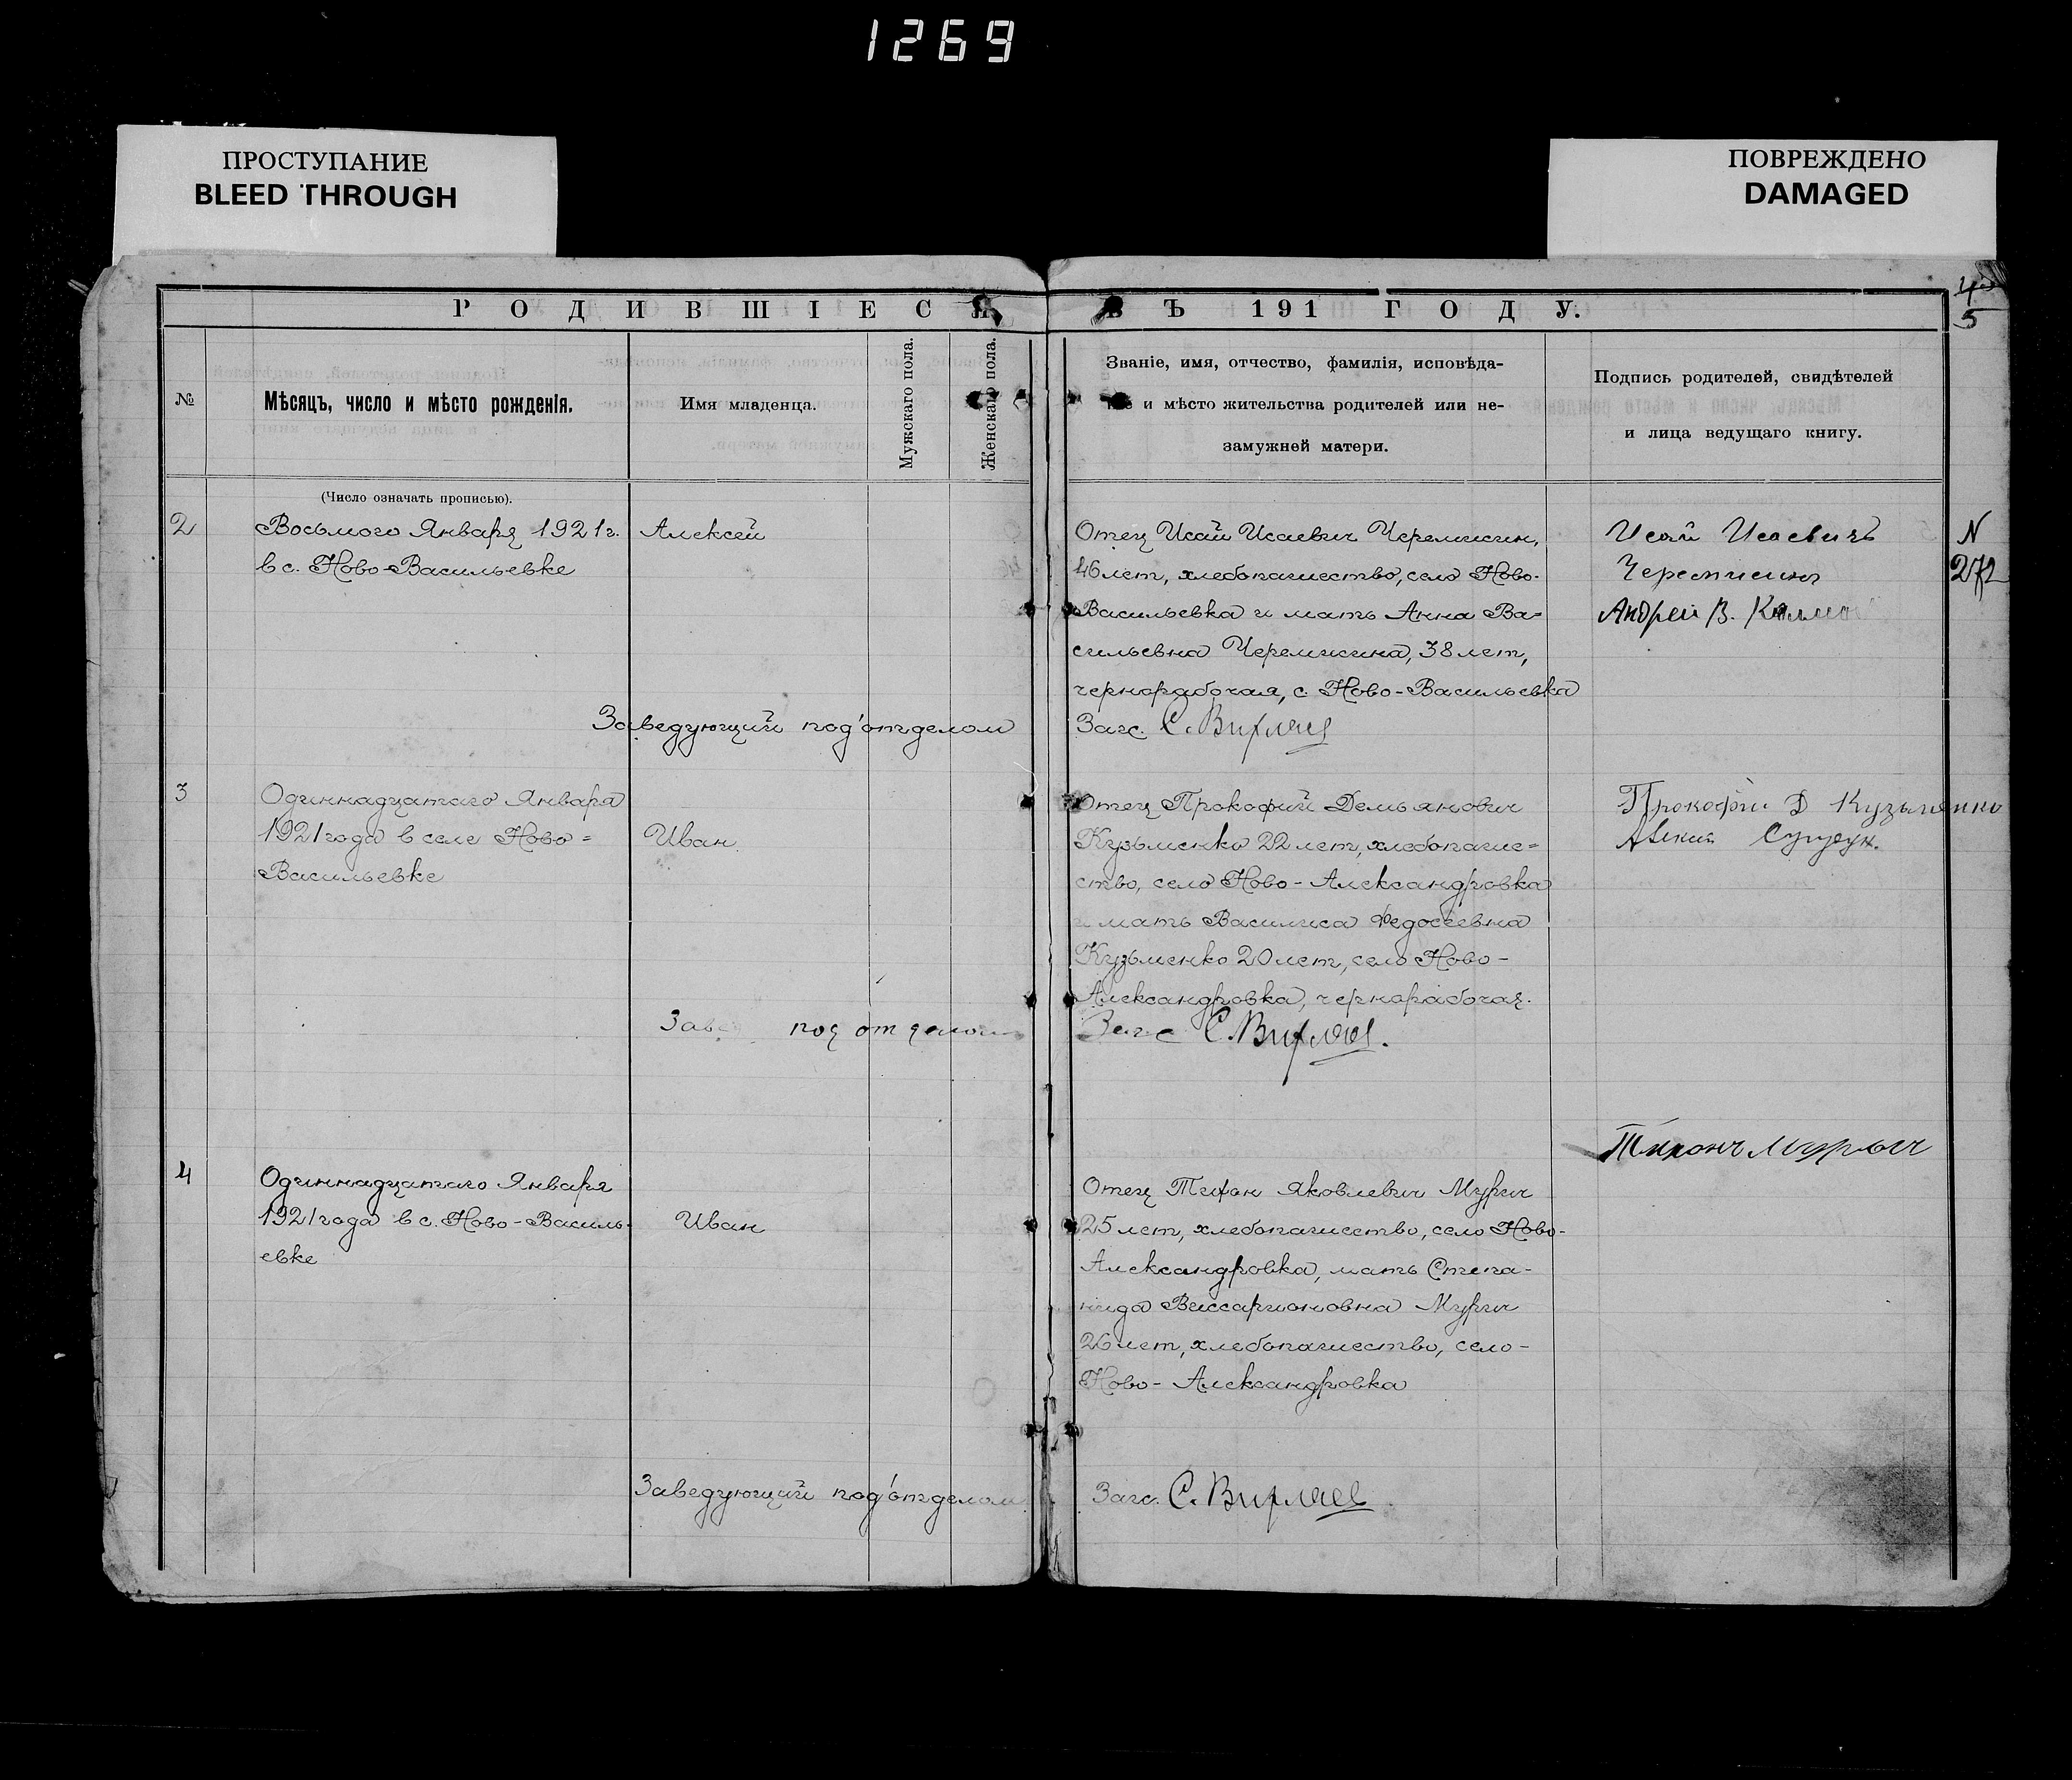 1269
ПРОСТУПАНИЕ
BLEED THROUGH
ПОВРЕЖДЕНО
DAMAGED
РОДИВШІЕСЯ
ВЪ 191 ГОДУ.
5
№
Мѣсяцъ, число и мѣсто рожденія.
Имя младенца.
Мужскаго пола.
Женскаго пола.
Званіе, имя, отчество, фамилія, исповѣда-
ніе и мѣсто жительства родителей или не-
замужней матери.
Подпись родителей, свидѣтелей
и лица ведущаго книгу.
(Число означать прописью).
2
Восьмого Января 1921 г.
в с. Ново-Васильевке
Алексей
Отец Исай Исаевич Черемисин,
46 лет, хлебопашество, село Ново-
Васильевка и мать Анна Ва=
сильевна Черемисина, 38 лет,
чернорабочая, с. Ново-Васильевка
Исай Исаевичъ
Черемисинъ
Андрей В.
N
272
Заведующий под'отделом
Загс. С.
3
Одиннадцатаго Января
1921 года в селе Ново=
Васильевке
Иван
Отец Прокофий Демьянович
Кузьменко 22 лет, хлебопаше=
ство, село Ново-Александровка
и мать Василиса Федосеевна
Кузьменко 20 лет, село Ново-
Александровка, чернорабочая.
Прокофiй Д Кузьменко
Зав под отделом
Загс С.
4
Одиннадцатаго Января
1921 года в с. Ново-Василь-
евке
Иван
Отец Тифон Яковлевич Мурич
25 лет, хлебопашество, село Ново-
Александровка, мать Степа-
нида Виссарионовна Мурич
26 лет, хлебопашество, село-
Ново-Александровка
Тихонъ
Заведующий под'отделом
Загс. С.